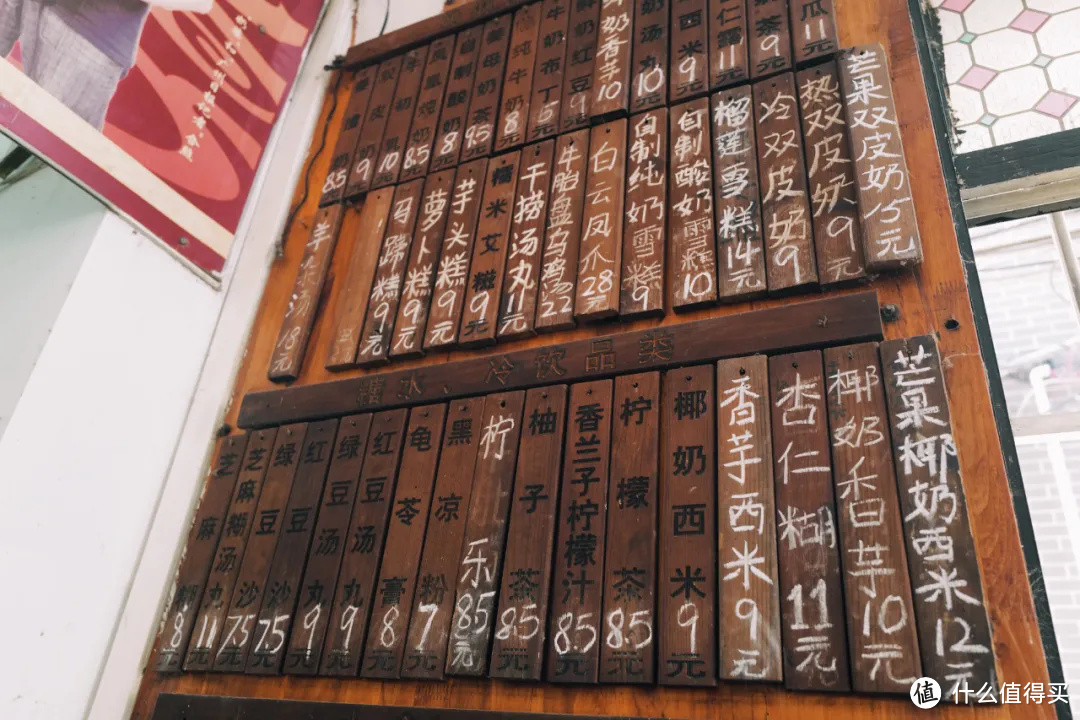 奶 8.5
9
10
凤凰炖奶 8.5
自制酸奶 8
奶茶 9.5
纯牛奶 8
牛奶布丁 5
红豆 9
奶香芋 10
奶汤丸 10
西米 9元
仁露 11元
奶茶 9元
瓜 11元
汤 18元
马蹄糕 9元
萝卜糕 9元
芋头糕 9元
糯米艾糍 9元
干捞汤丸 11元
牛胎盘乌鸡汤 22
白云凤爪 28元
自制纯奶雪糕 9
自制酸奶雪糕 10
榴莲雪糕 14元
冷双皮奶 9
热双皮奶 9元
芒果双皮奶 15元
糖水、冷饮品类
芝麻糊 8元
芝麻糊汤丸 11元
绿豆沙 7.5元
红豆沙 7.5元
绿豆汤丸 9元
红豆汤丸 9元
龟苓膏 8元
黑凉粉 7元
柠乐 8.5元
柚子茶 8.5元
香兰子柠檬汁 8.5元
柠檬茶 8.5元
椰奶西米 9元
香芋西米 9元
杏仁糊 11元
椰奶香芋 10元
芒果椰奶西米 12元
值 什么值得买